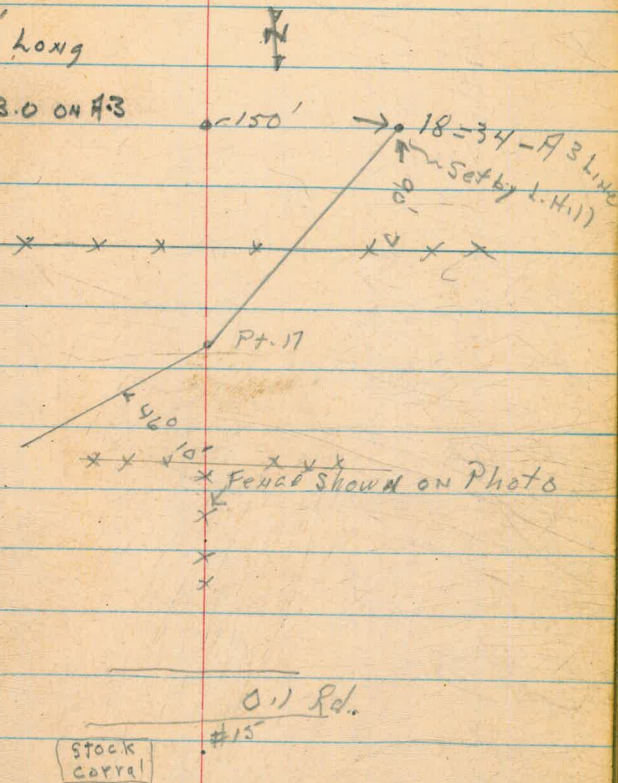 N
' Long
3.0 ON A.3
-150'
18=34-A 3 Line
Set by L. Hill
90'
Pt. 17
460
10'
Fence Shown ON Photo
Oil Rd.
#15
Stock
corral